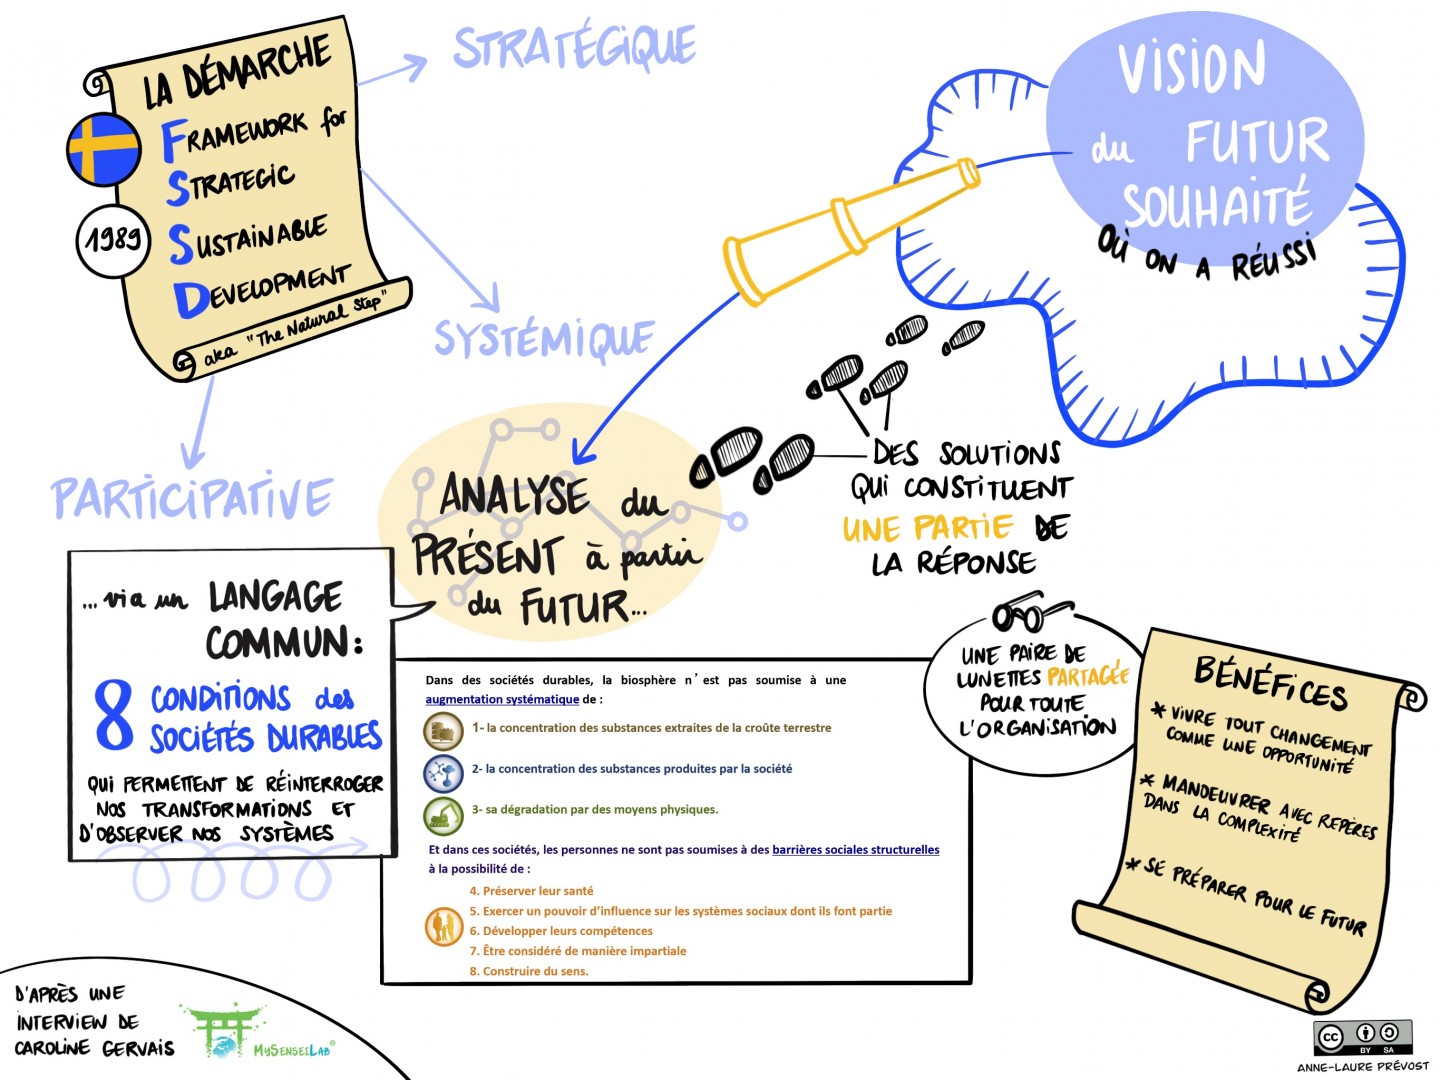 LA DÉMARCHE
FRAMEWORK for
STRATEGIC
SUSTAINABLE
DEVELOPMENT
aka "The Natural Step"
1989
STRATÉGIQUE
SYSTÉMIQUE
PARTICIPATIVE
VISION
du FUTUR
SOUHAITÉ
OÙ ON A RÉUSSI
ANALYSE du
PRÉSENT à partir
du FUTUR...
DES SOLUTIONS
QUI CONSTITUENT
UNE PARTIE DE
LA RÉPONSE
... via un LANGAGE
COMMUN:
8 CONDITIONS des
SOCIÉTÉS DURABLES
QUI PERMETTENT DE RÉINTERROGER
NOS TRANSFORMATIONS ET
D'OBSERVER NOS SYSTÈMES
Dans des sociétés durables, la biosphère n'est pas soumise à une
augmentation systématique de :
1- la concentration des substances extraites de la croûte terrestre
2- la concentration des substances produites par la société
3- sa dégradation par des moyens physiques.
Et dans ces sociétés, les personnes ne sont pas soumises à des barrières sociales structurelles
à la possibilité de :
4. Préserver leur santé
5. Exercer un pouvoir d'influence sur les systèmes sociaux dont ils font partie
6. Développer leurs compétences
7. Être considéré de manière impartiale
8. Construire du sens.
UNE PAIRE DE
LUNETTES PARTAGÉE
POUR TOUTE
L'ORGANISATION
BÉNÉFICES
* VIVRE TOUT CHANGEMENT
COMME UNE OPPORTUNITÉ
* MANOEUVRER AVEC REPÈRES
DANS LA COMPLEXITÉ
* SE PRÉPARER POUR LE FUTUR
D'APRÈS UNE
INTERVIEW DE
CAROLINE GERVAIS
MYSENSEILAB®
CC BY SA
ANNE-LAURE PRÉVOST